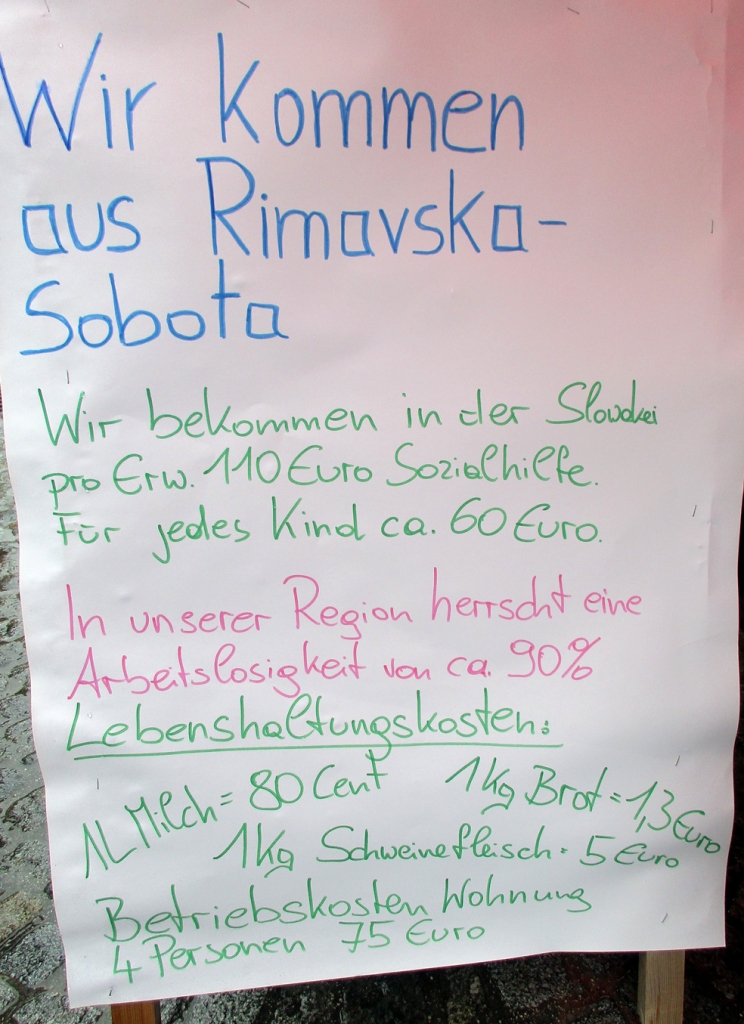 Wir kommen
aus Rimavska-
Sobota
Wir bekommen in der Slowakei
pro Erw. 110 Euro Sozialhilfe.
Für jedes Kind ca. 60 Euro.
In unserer Region herrscht eine
Arbeitslosigkeit von ca. 90%
Lebenshaltungskosten:
1L Milch = 80 Cent 1kg Brot = 1,3 Euro
1kg Schweinefleisch = 5 Euro
Betriebskosten Wohnung
4 Personen 75 Euro